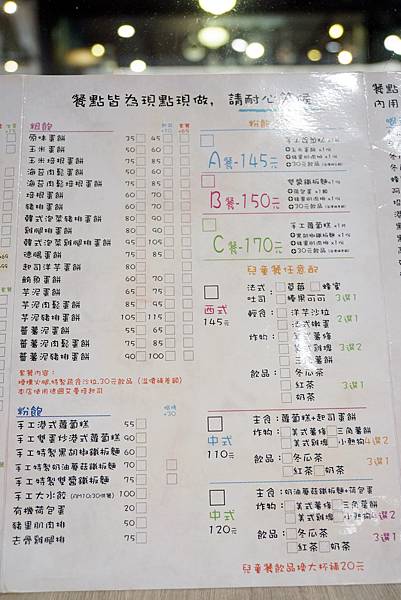 餐點皆為現點現做, 請耐心等候
粗飽
原味蛋餅 35 45
玉米蛋餅 55 65
玉米培根蛋餅 75 85
海苔肉鬆蛋餅 55 65
海苔肉鬆培根蛋餅 75 85
培根蛋餅 60 70
豬排蛋餅 80 90
韓式泡菜豬排蛋餅 90 100
雞腿排蛋餅 80 90
韓式泡菜雞腿排蛋餅 95
德腸蛋餅 75 85
起司洋芋蛋餅
鮪魚蛋餅 60 70
芋泥蛋餅 65 75
芋泥肉鬆蛋餅 75 85
芋泥豬排蛋餅 105 115
蕃薯泥蛋餅 55 65
蕃薯泥肉鬆蛋餅 65 75
蕃薯泥豬排蛋餅 90 100
套餐內容:
粉飽
手工港式蘿蔔糕 55
手工雙蛋炒港式蘿蔔糕 90
手工特製黑胡椒鐵板麵
手工特製奶油蘑菇鐵板麵 70
手工特製雙醬鐵板麵
手工大水餃 (AM10:30供餐) 100
有機荷包蛋 20
豬里肌肉排 50
去骨雞腿排
粉飽
A餐-145元
B餐-150元
雙醬鐵板麵x1份
C餐-170元
手工蘿蔔糕x1份
兒童餐任意配
西式
145元
法式: 草莓 蜂蜜
吐司 榛果可可 3選1
輕食: 洋芋沙拉
法式嫩蛋 2選1
炸物: 美式薯條
美式雞塊 3選2
三角薯餅
飲品: 冬瓜茶
紅茶
奶茶 3選1
中式
110元
主食: 蘿蔔糕+起司蛋餅
炸物: 美式薯條 三角薯餅
美式雞塊 小熱狗 4選2
飲品: 冬瓜茶
紅茶 奶茶 3選1
中式
120元
主食: 奶油蘑菇鐵板麵+荷包蛋
炸物: 美式薯條 三角薯餅
美式雞塊 小熱狗 4選2
飲品: 冬瓜茶
紅茶 奶茶 3選1
兒童餐飲品換大杯補20元